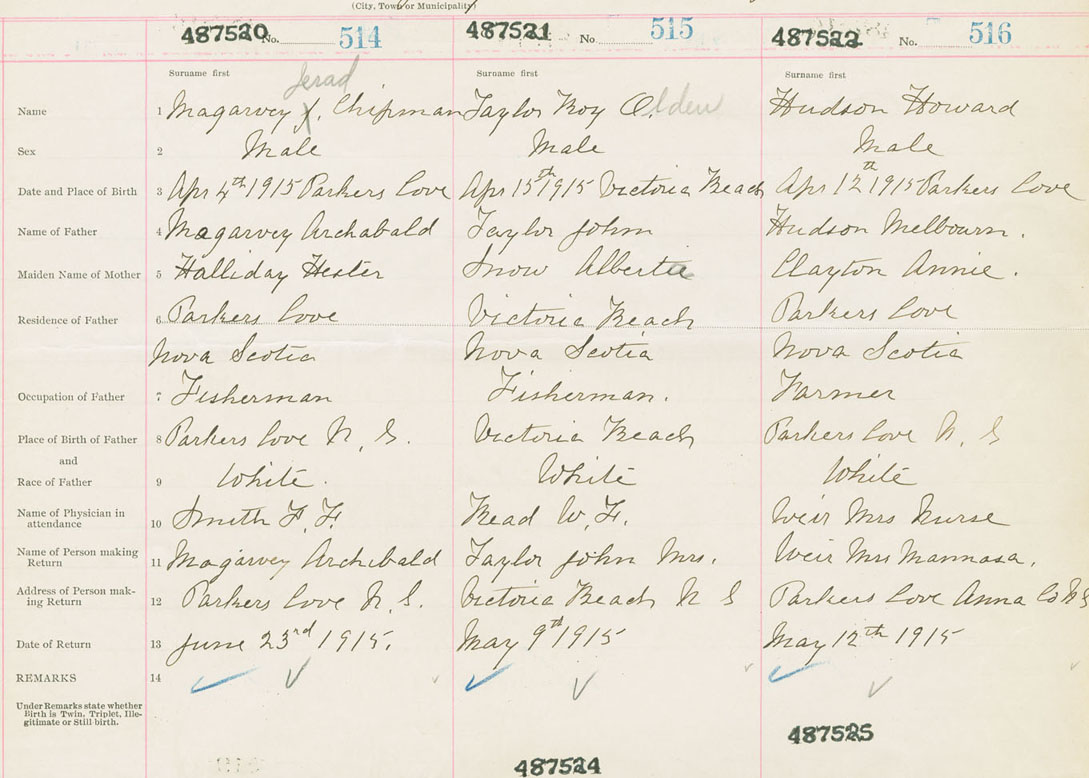 (City, Town or Municipality)
487520 No. 514
487521 No. 515
487522 No. 516
Surname first Surname first Surname first
Jerad
Name 1 Magarvey J. Chipman Taylor Roy Olden Hudson Howard
Sex 2 Male Male Male
Date and Place of Birth 3 Apr 4th 1915 Parkers Cove Apr 15th 1915 Victoria Beach Apr 12th 1915 Parkers Cove
Name of Father 4 Magarvey Archabald Taylor John Hudson Melbourn.
Maiden Name of Mother 5 Halliday Hester Snow Alberta Clayton Annie.
Residence of Father 6 Parkers Cove Victoria Beach Parkers Cove
Nova Scotia Nova Scotia Nova Scotia
Occupation of Father 7 Fisherman Fisherman. Farmer
Place of Birth of Father 8 Parkers Cove N. S. Victoria Beach Parkers Cove N. S
and
Race of Father 9 White. White White
Name of Physician in attendance 10 Smith F. F. Read W. F. Weir Mrs Nurse
Name of Person making Return 11 Magarvey Archibald Taylor John Mrs. Weir Mrs Mannasa.
Address of Person making Return 12 Parkers Cove N. S. Victoria Beach N S Parkers Cove Anna Co NS
Date of Return 13 June 23rd 1915. May 9th 1915 May 12th 1915
REMARKS 14
Under Remarks state whether
Birth is Twin, Triplet, Ille-
gitimate or Still-birth.
487525
487524